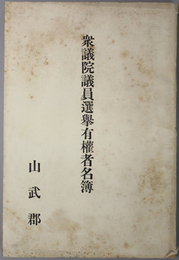 衆議院議員選擧有權者名簿
山武郡